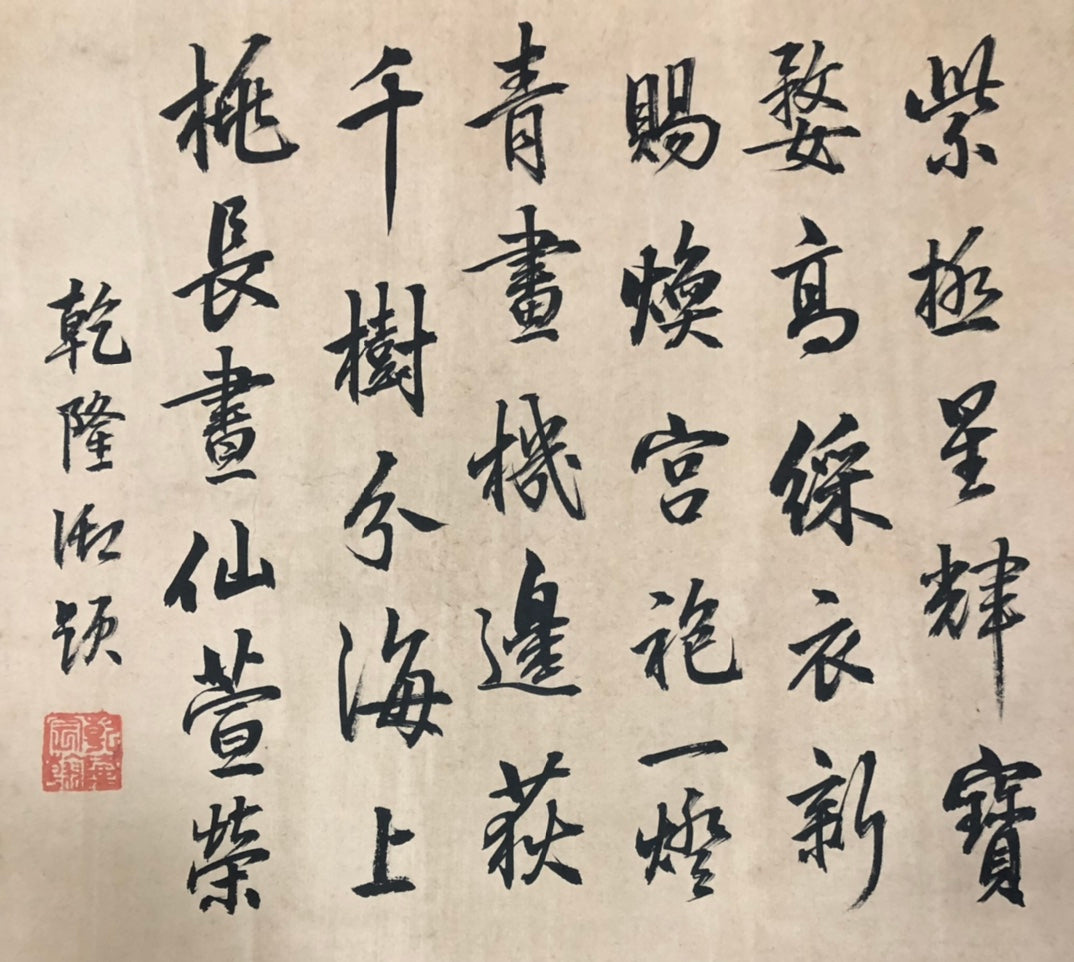 紫極星輝寶
婺高綵衣新
賜煥宮袍一燈
青畫機邊荻
千樹分海上
桃長晝仙萱榮
乾隆御題
乾隆宸翰